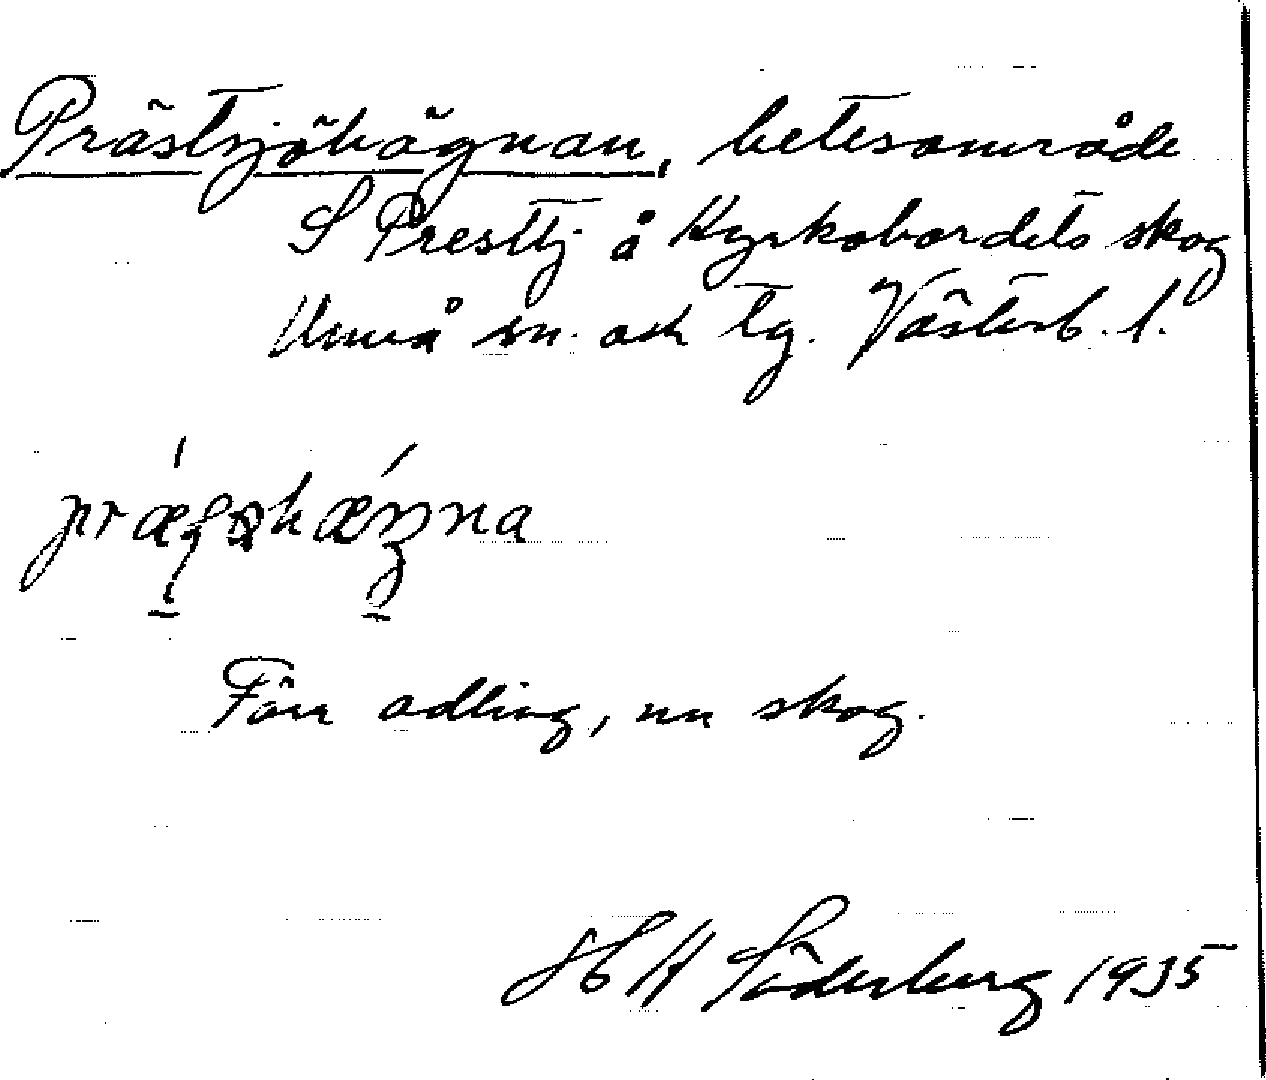 Prästsjöhägnan, betesområde
S Presttj å Kyrkobordets skog
Umeå sn. och tg. Västerb. l.
Förr odling, nu skog.
H Söderberg 1935